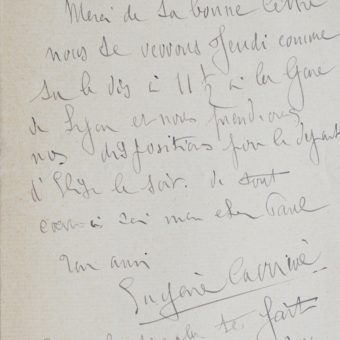 Merci de ta bonne lettre
nous te verrons Jeudi comme
tu le dis à 11 h 1/2 à la Gare
de Lyon et nous prendrons
nos dispositions pour le départ
d'Elise le soir. de tout
coeur à toi mon cher Paul
ton ami
Eugène Carrière
te fait